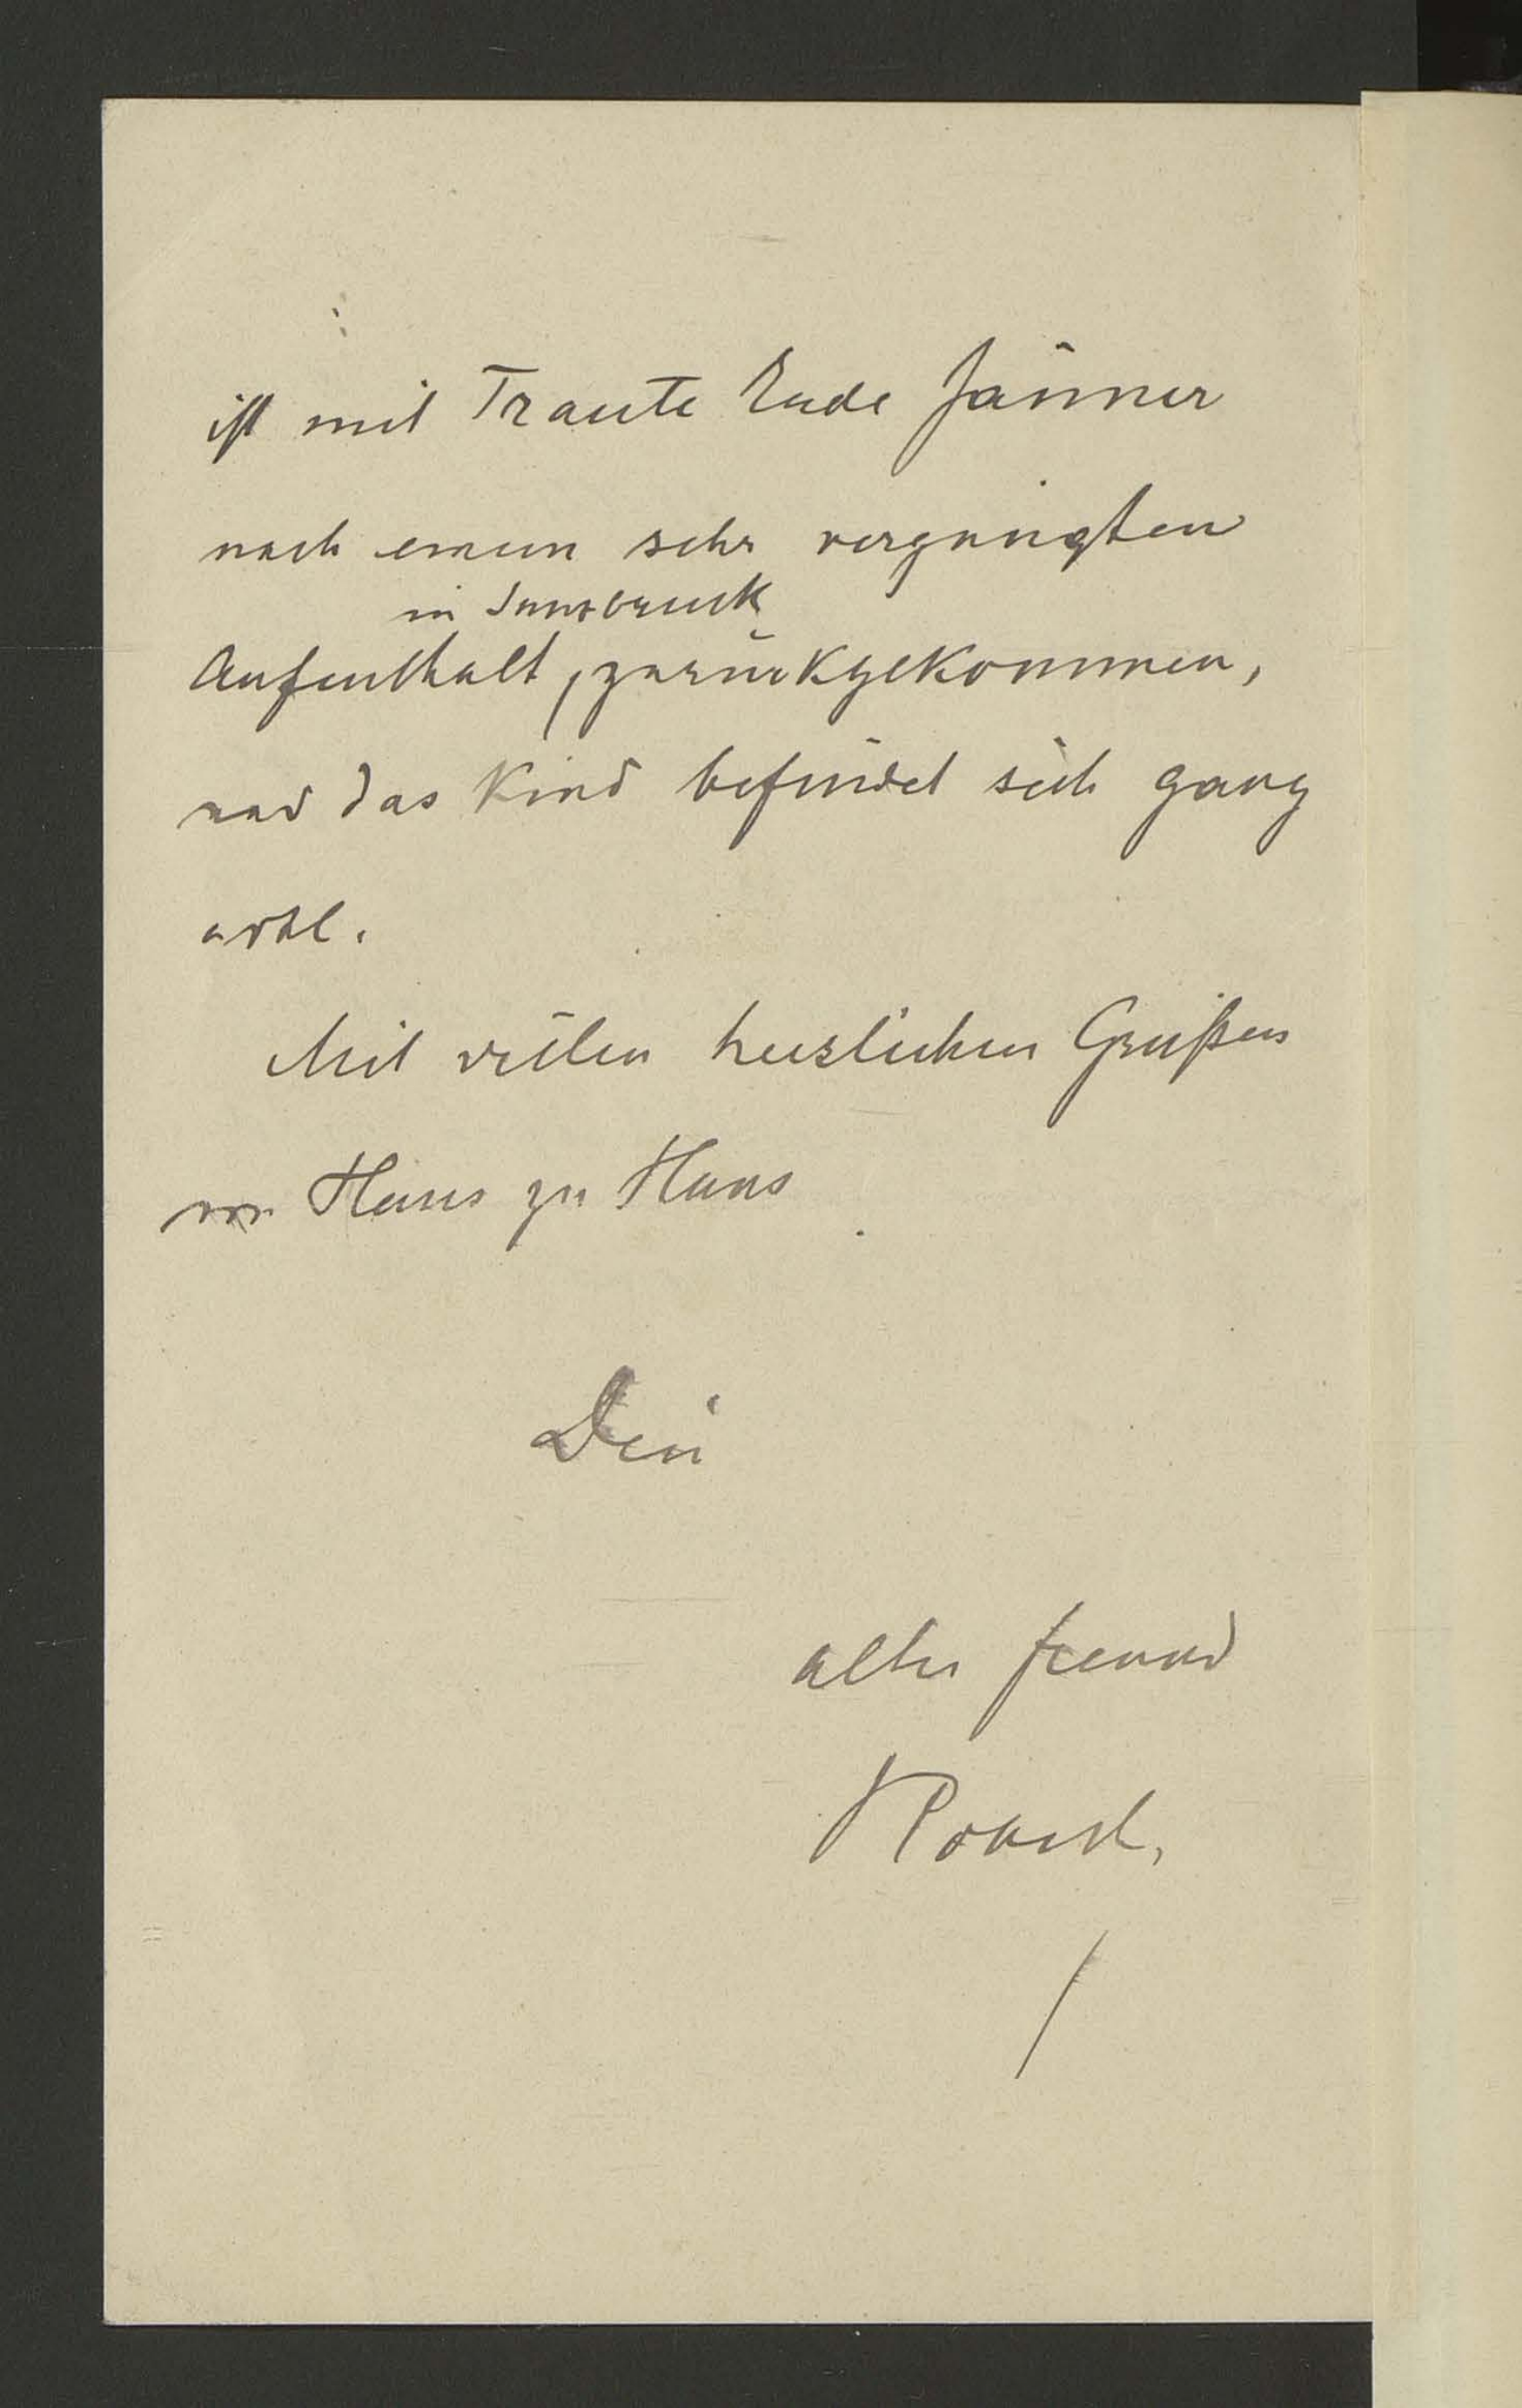 ist mit Traute Ende Jänner
nach einem sehr vergnügten
in Innsbruck
Aufenthalt, zurückgekommen,
und das Kind befindet sich ganz
wohl.
Mit vielen herzlichen Grüßen
von Haus zu Haus
Dein
alter Freund
Robert.